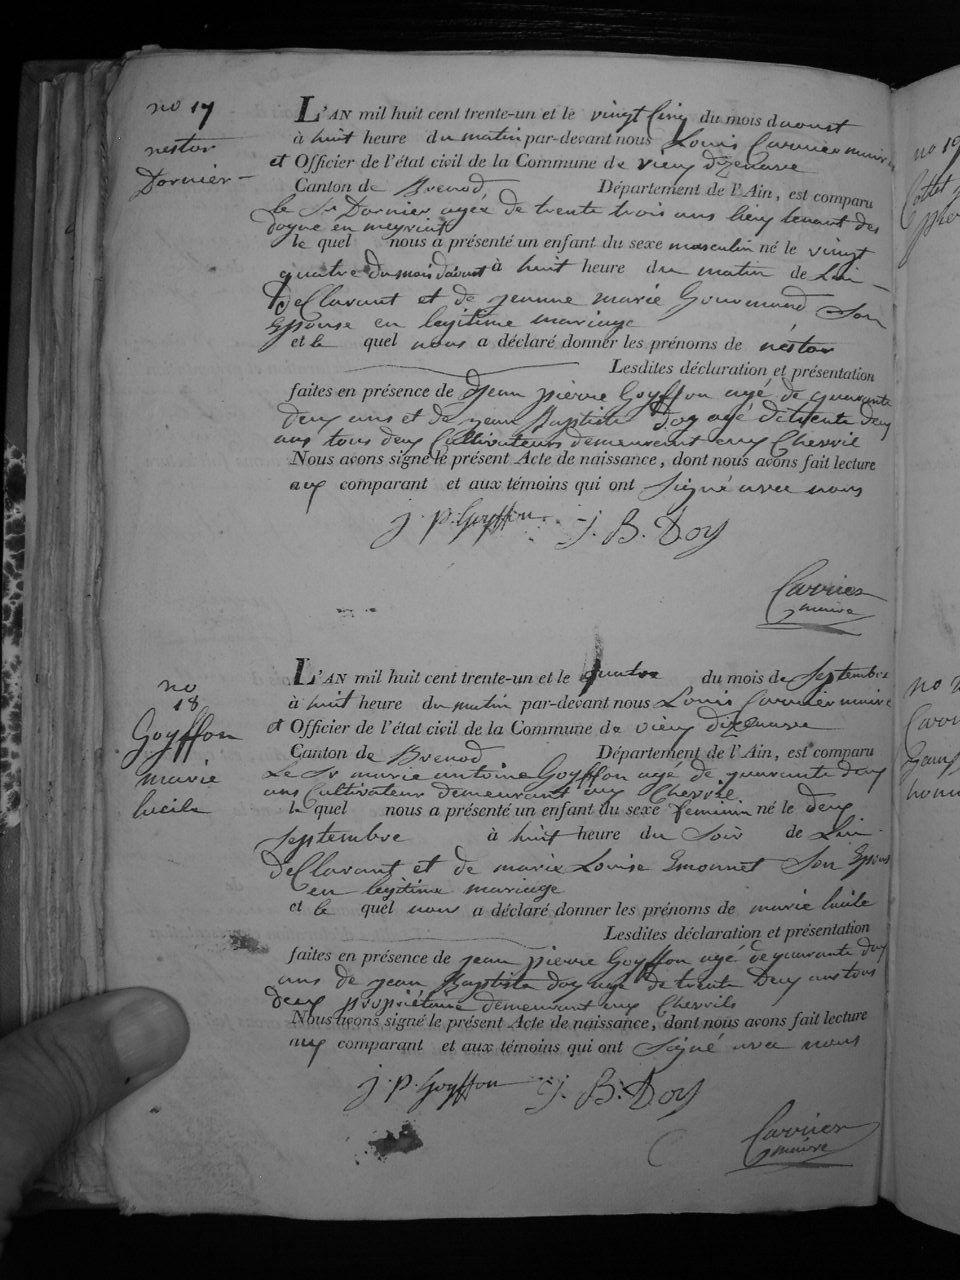 no 17
nestor
Dornier
L'AN mil huit cent trente-un et le vingt Cinq du mois daoust
à huit heure du matin par-devant nous Louis Carrier maire
et Officier de l'état civil de la Commune de vieux dizenave
Canton de Brenod Département de l'Ain, est comparu
le Sr Dornier agée de trente trois ans lieu tenant des
en
le quel nous a présenté un enfant du sexe masculin né le vingt
quatre du mois daoust à huit heure du matin de Lui
deClarant et de jeanne marie Gourmand Son
Epouse en legitime mariage
et le quel nous a déclaré donner les prénoms de néstor
Lesdites déclaration et présentation
faites en présence de jean pierre Goyffon agé de quarante
deux ans et de jean Baptiste doy agé de trente deux
ans tous deux Cultivateurs demeurant aux Chevril
Nous avons signé le présent Acte de naissance, dont nous avons fait lecture
aux comparant et aux témoins qui ont Signé avec nous
j. p. Goyffon J. B. Doy
Carrier
maire
no
18
Goyffon
marie
lucile
L'AN mil huit cent trente-un et le quatre du mois de Septembre
à huit heure du matin par-devant nous Louis Carrier maire
et Officier de l'état civil de la Commune de vieux dizenave
Canton de Brenod Département de l'Ain, est comparu
Le Sr marie antoine Goyffon agé de quarante deux
ans Cultivateur demeurant aux Chevril
le quel nous a présenté un enfant du sexe feminin né le deux
septembre à huit heure du Soir de Lui
deClarant et de marie Louise Emonnet Son Epouse
en legitime mariage
et le quel nous a déclaré donner les prénoms de marie lucile
Lesdites déclaration et présentation
faites en présence de jean pierre Goyffon agé de quarante deux
ans de jean Baptiste doy agé de trente Deux ans tous
deux propriétaire demeurant aux Chevrils
Nous avons signé le présent Acte de naissance, dont nous avons fait lecture
aux comparant et aux témoins qui ont Signé avec nous
j. p. Goyffon J. B. Doy
Carrier
maire
no 19